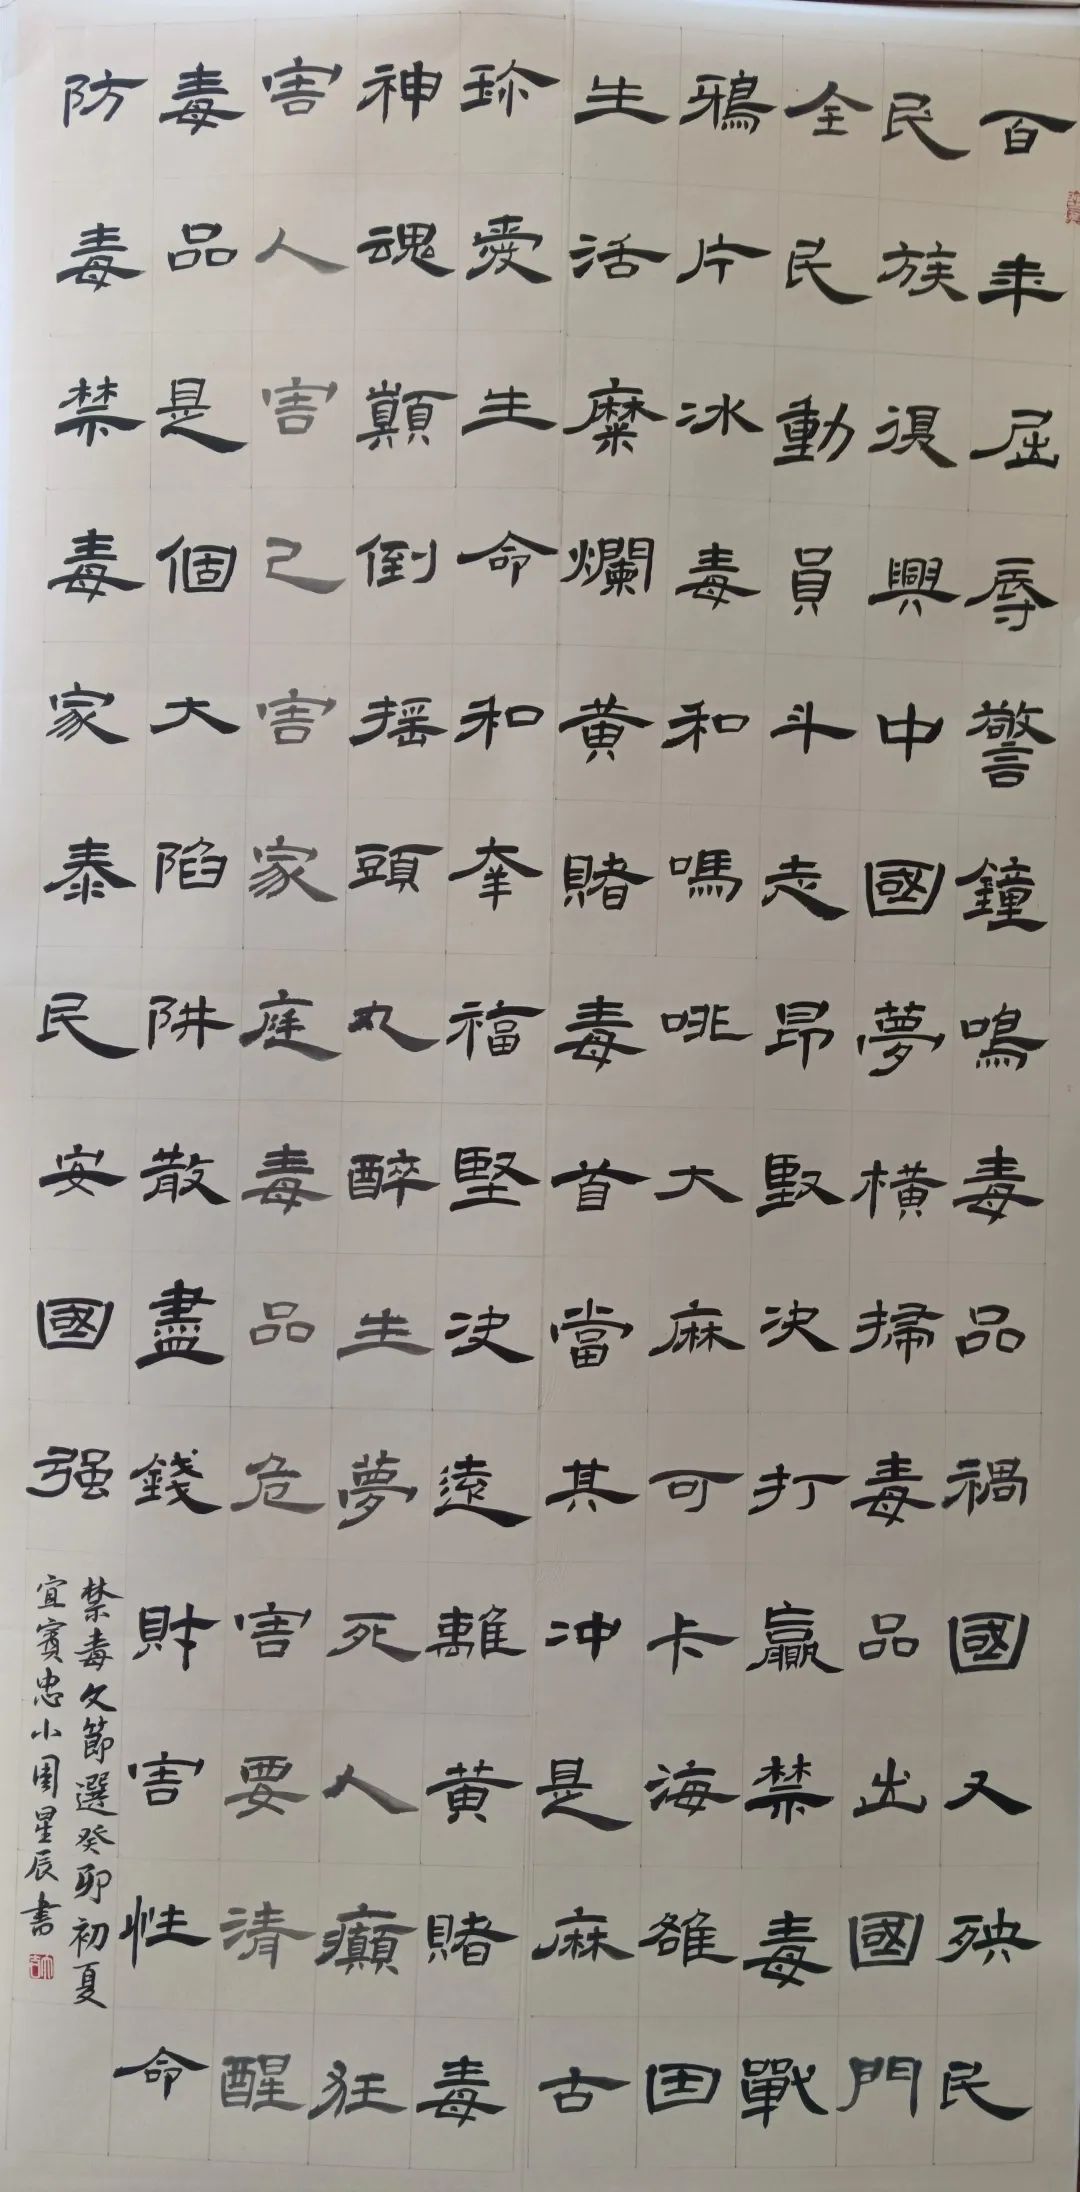 百年屈辱警鐘鳴毒品禍國又殃民
民族復興中國夢橫掃毒品出國門
全民動員斗志昂堅决打贏禁毒戰
鴉片冰毒和嗎啡大麻可卡海雒因
生活糜爛黄賭毒首當其冲是麻古
珍愛生命和幸福堅决遠離黄賭毒
神魂顛倒摇頭丸醉生夢死人癲狂
害人害己害家庭毒品危害要清醒
毒品是個大陷阱散盡錢財害性命
防毒禁毒家泰民安國强
禁毒文節選癸卯初夏
宜賓忠小周星辰書